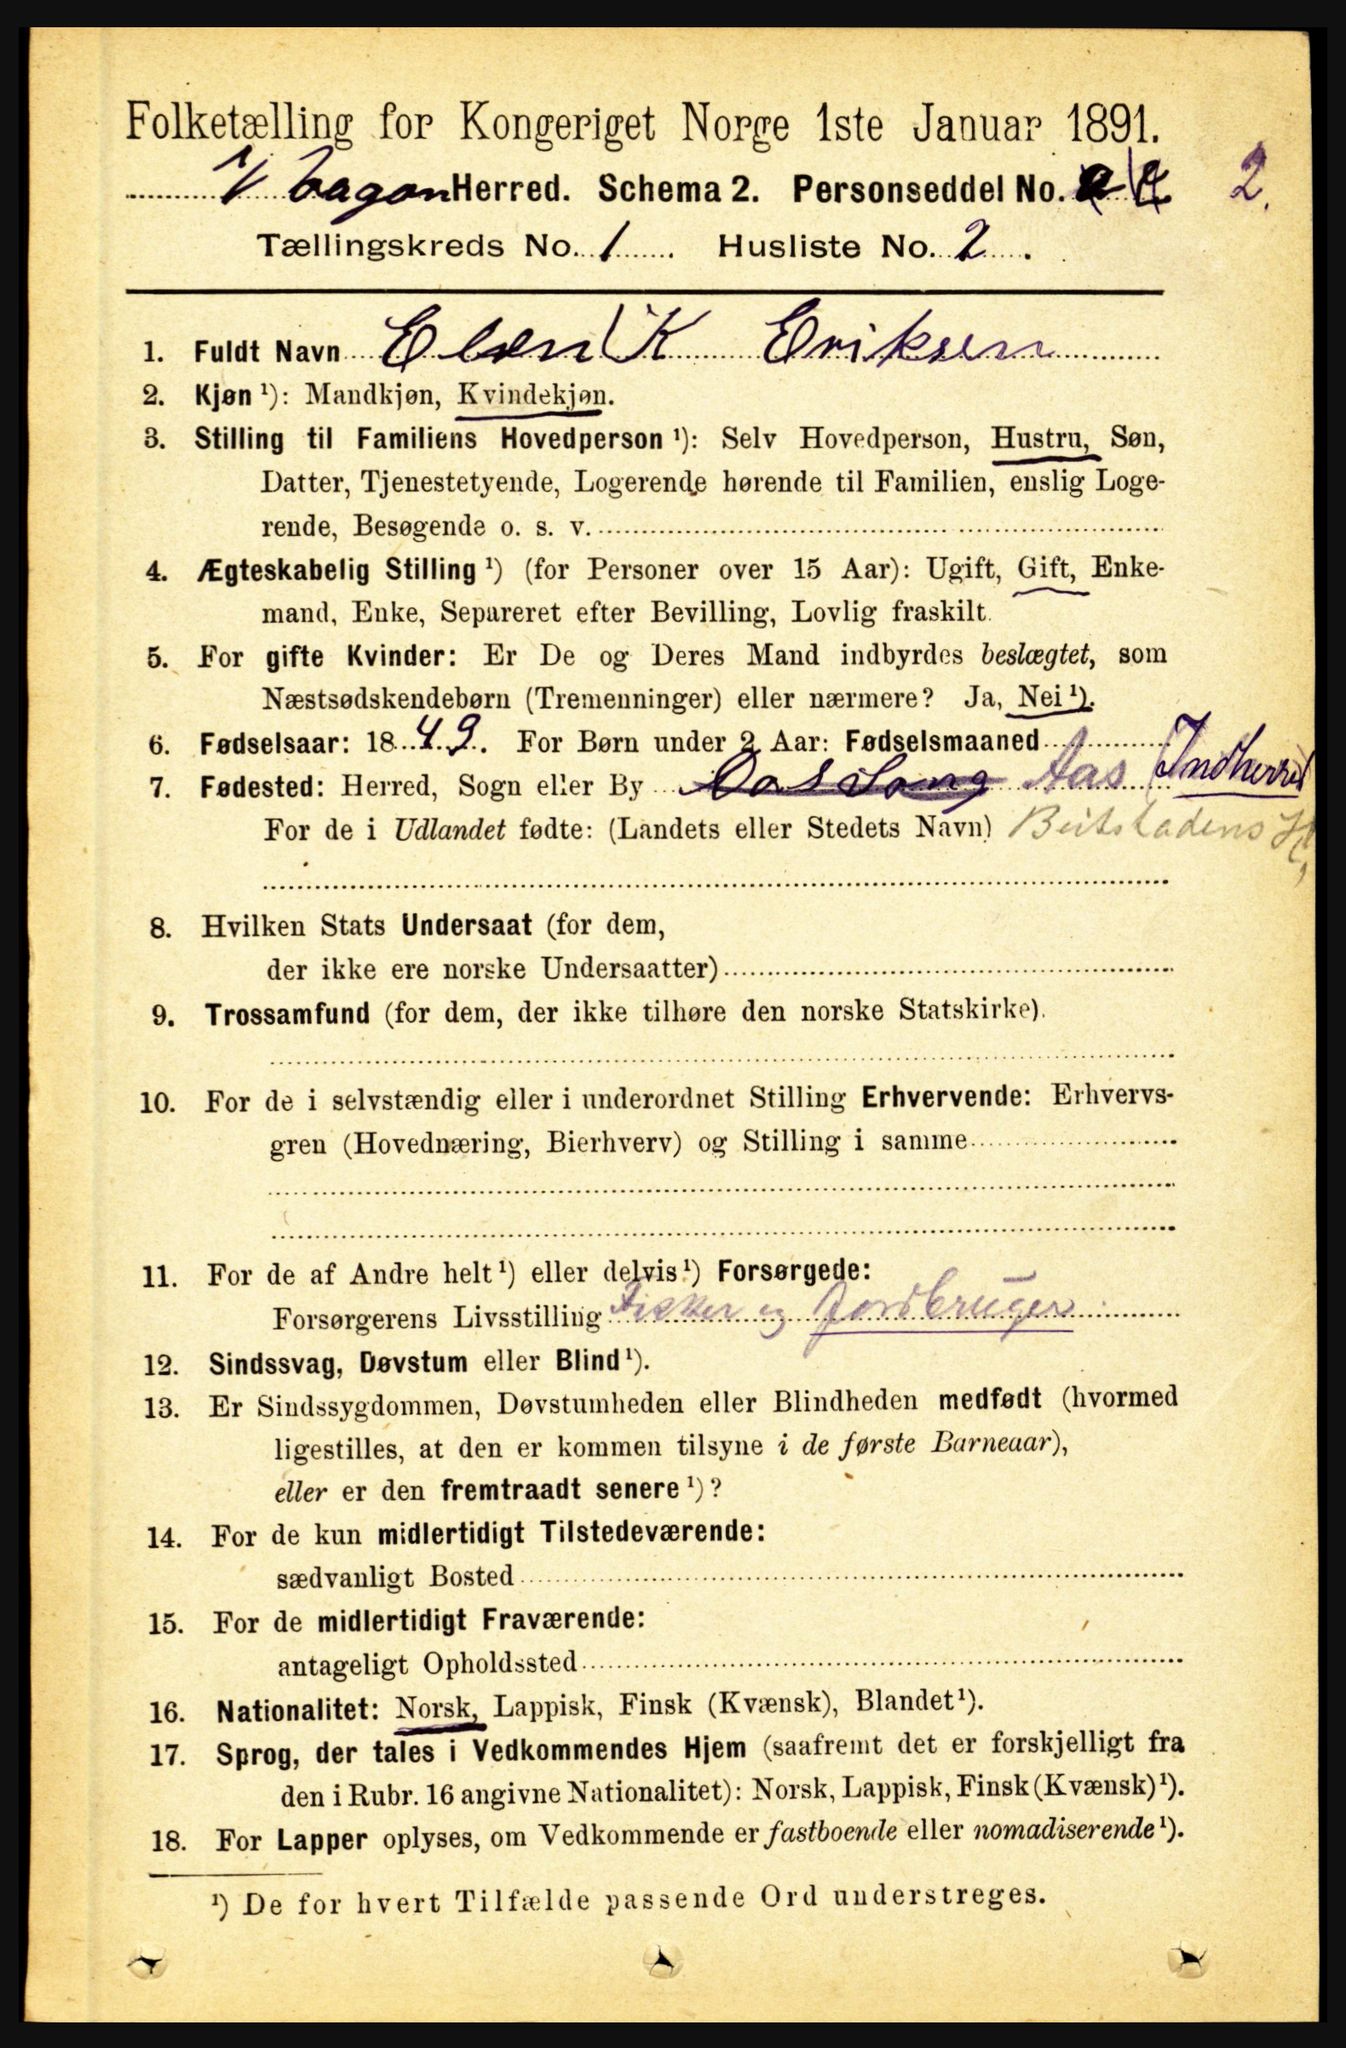 Folketælling for Kongeriget Norge 1ste Januar 1891.
Vaagan Herred. Schema 2. Personseddel No. 2.
Tællingskreds No. 1 Husliste No. 2.
1. Fuldt Navn Elen K Eriksen
2. Kjøn ¹): Mandkjøn, Kvindekjøn.
3. Stilling til Familiens Hovedperson ¹): Selv Hovedperson, Hustru, Søn,
Datter, Tjenestetyende, Logerende hørende til Familien, enslig Loge-
rende, Besøgende o. s. v.
4. Ægteskabelig Stilling ¹) (for Personer over 15 Aar): Ugift, Gift, Enke-
mand, Enke, Separeret efter Bevilling, Lovlig fraskilt.
5. For gifte Kvinder: Er De og Deres Mand indbyrdes beslægtet, som
Næstsødskendebørn (Tremenninger) eller nærmere? Ja, Nei ¹).
6. Fødselsaar: 1849. For Børn under 2 Aar: Fødselsmaaned
7. Fødested: Herred, Sogn eller By Aas Indherred
For de i Udlandet fødte: (Landets eller Stedets Navn) Beitstadens
8. Hvilken Stats Undersaat (for dem,
der ikke ere norske Undersaatter)
9. Trossamfund (for dem, der ikke tilhøre den norske Statskirke).
10. For de i selvstændig eller i underordnet Stilling Erhvervende: Erhvervs-
gren (Hovednæring, Bierhverv) og Stilling i samme
11. For de af Andre helt ¹) eller delvis ¹) Forsørgede:
Forsørgerens Livsstilling Fisker og Jordbruger
12. Sindssvag, Døvstum eller Blind ¹).
13. Er Sindssygdommen, Døvstumheden eller Blindheden medfødt (hvormed
ligestilles, at den er kommen tilsyne i de første Barneaar),
eller er den fremtraadt senere ¹)?
14. For de kun midlertidigt Tilstedeværende:
sædvanligt Bosted
15. For de midlertidigt Fraværende:
antageligt Opholdssted
16. Nationalitet: Norsk, Lappisk, Finsk (Kvænsk), Blandet ¹).
17. Sprog, der tales i Vedkommendes Hjem (saafremt det er forskjelligt fra
den i Rubr. 16 angivne Nationalitet): Norsk, Lappisk, Finsk (Kvænsk) ¹).
18. For Lapper oplyses, om Vedkommende er fastboende eller nomadiserende ¹).
¹) De for hvert Tilfælde passende Ord understreges.